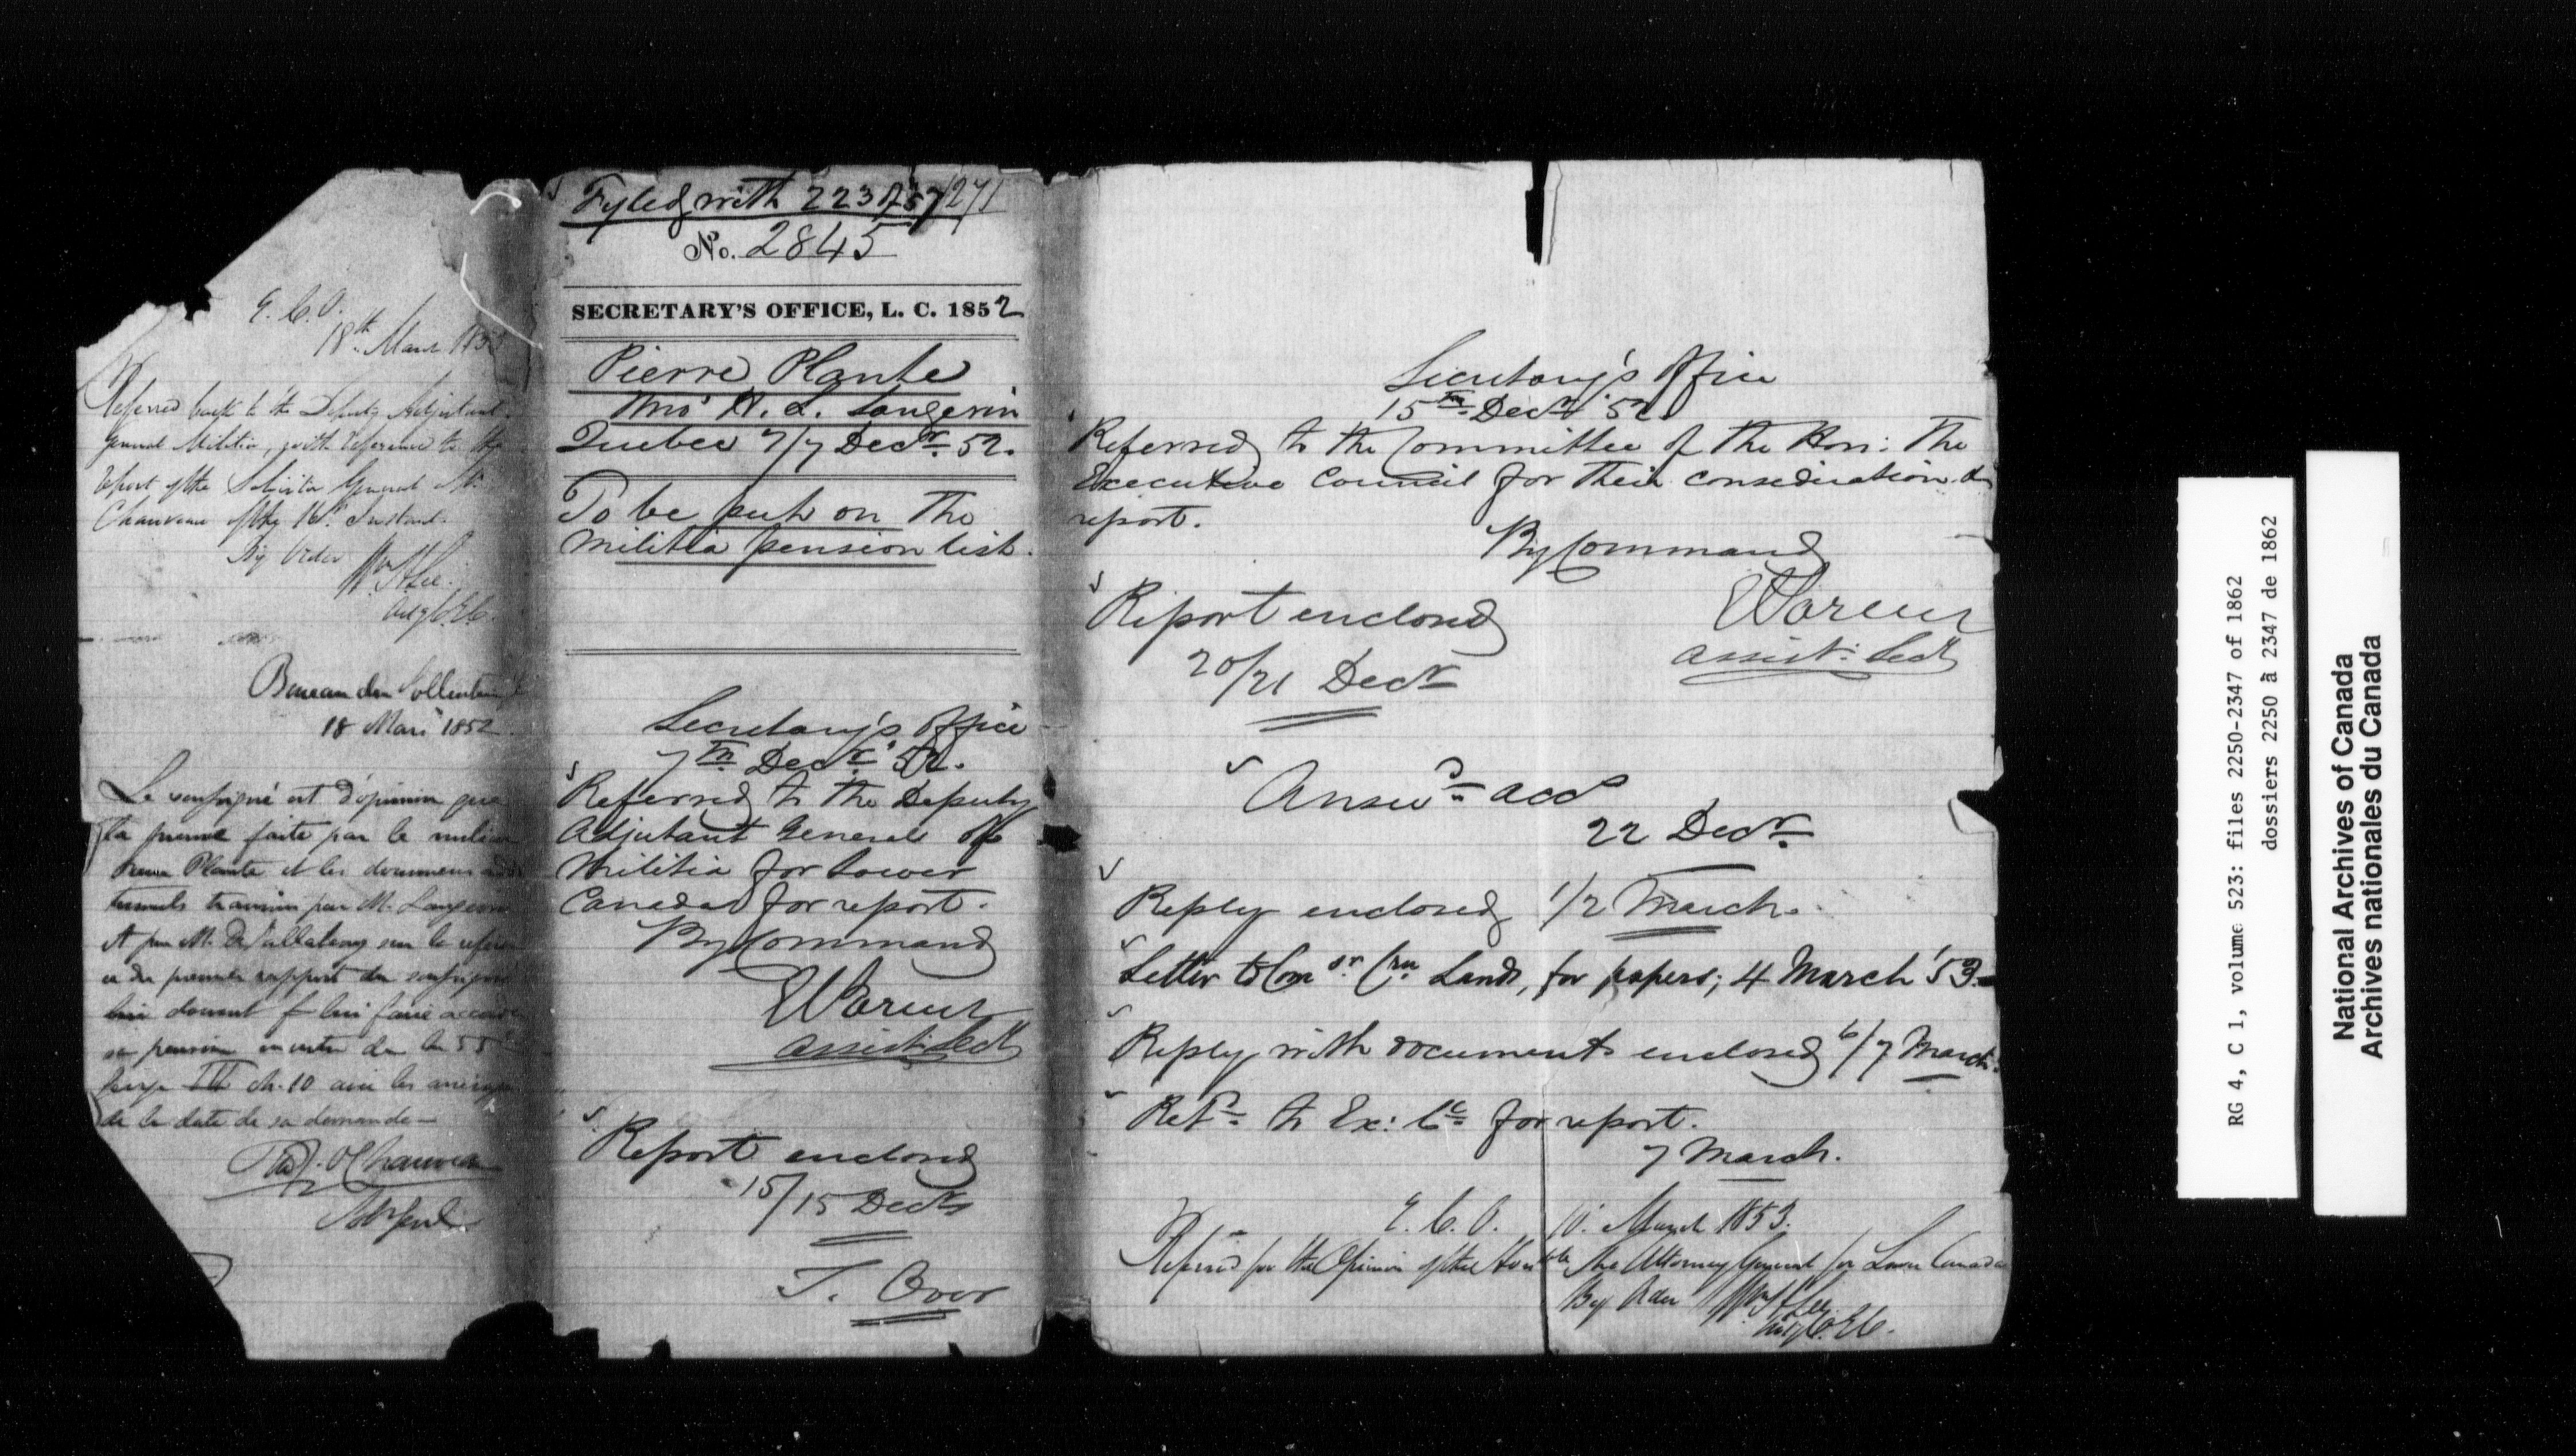 E. C. O.
18th March 1853
Referred back to the Deputy Adjutant
General Militia, with reference to the
Report of the Solicitor General Mr.
Chauveau of the Instant.
By Order Wm H Lee
Actg C.E.C.
Bureau du Solliciteur
18 Mars 1852
Le soussigné est d'opinion que
la preuve faite par le milicien
Pierre Plante et les documens
transmis par M. Langevin
et par M. De Salaberry sur la
ce du premier rapport du soussigné
lui doivent faire
sa pension en vertu de la 55
George III ch. 10 avec les arrérages
de la date de sa demande —
P. J. O. Chauveau
Solr Genl.
Fyled with 223 of 57/271
No. 2845
SECRETARY'S OFFICE, L. C. 1852
Pierre Plante
Thro' H. L. Langevin
Quebec 7/7 Decr. 52.
To be put on The
Militia pension list.
Secretary's Office
7th Decr 52.
Referred to the Deputy
Adjutant General of
Militia for Lower
Canada for report.
By Command
E Parent
Assist: Secy
Report enclosed
15/15 Decr
T. Over
Secretary's Office
15th Decr 52
Referred to the Committee of the Hon: The
Executive Council for their consideration &
report.
By Command
E Parent
Assist: Secy
Report enclosed
20/21 Decr
Answd acc
22 Decr
Reply enclosed 1/2 March.
Letter to Comr Crn Lands, for papers; 4 March '53.
Reply with documents enclosed 6/7 March.
Refd to Ex: Cc for report.
7 March.
E. C. O. 10. March 1853.
Referred for the Opinion of the Honble the Attorney General for Lower Canada
By Order Wm H Lee
Actg C.E.C.
RG 4, C 1, volume 523: files 2250-2347 of 1862
dossiers 2250 à 2347 de 1862
National Archives of Canada
Archives nationales du Canada